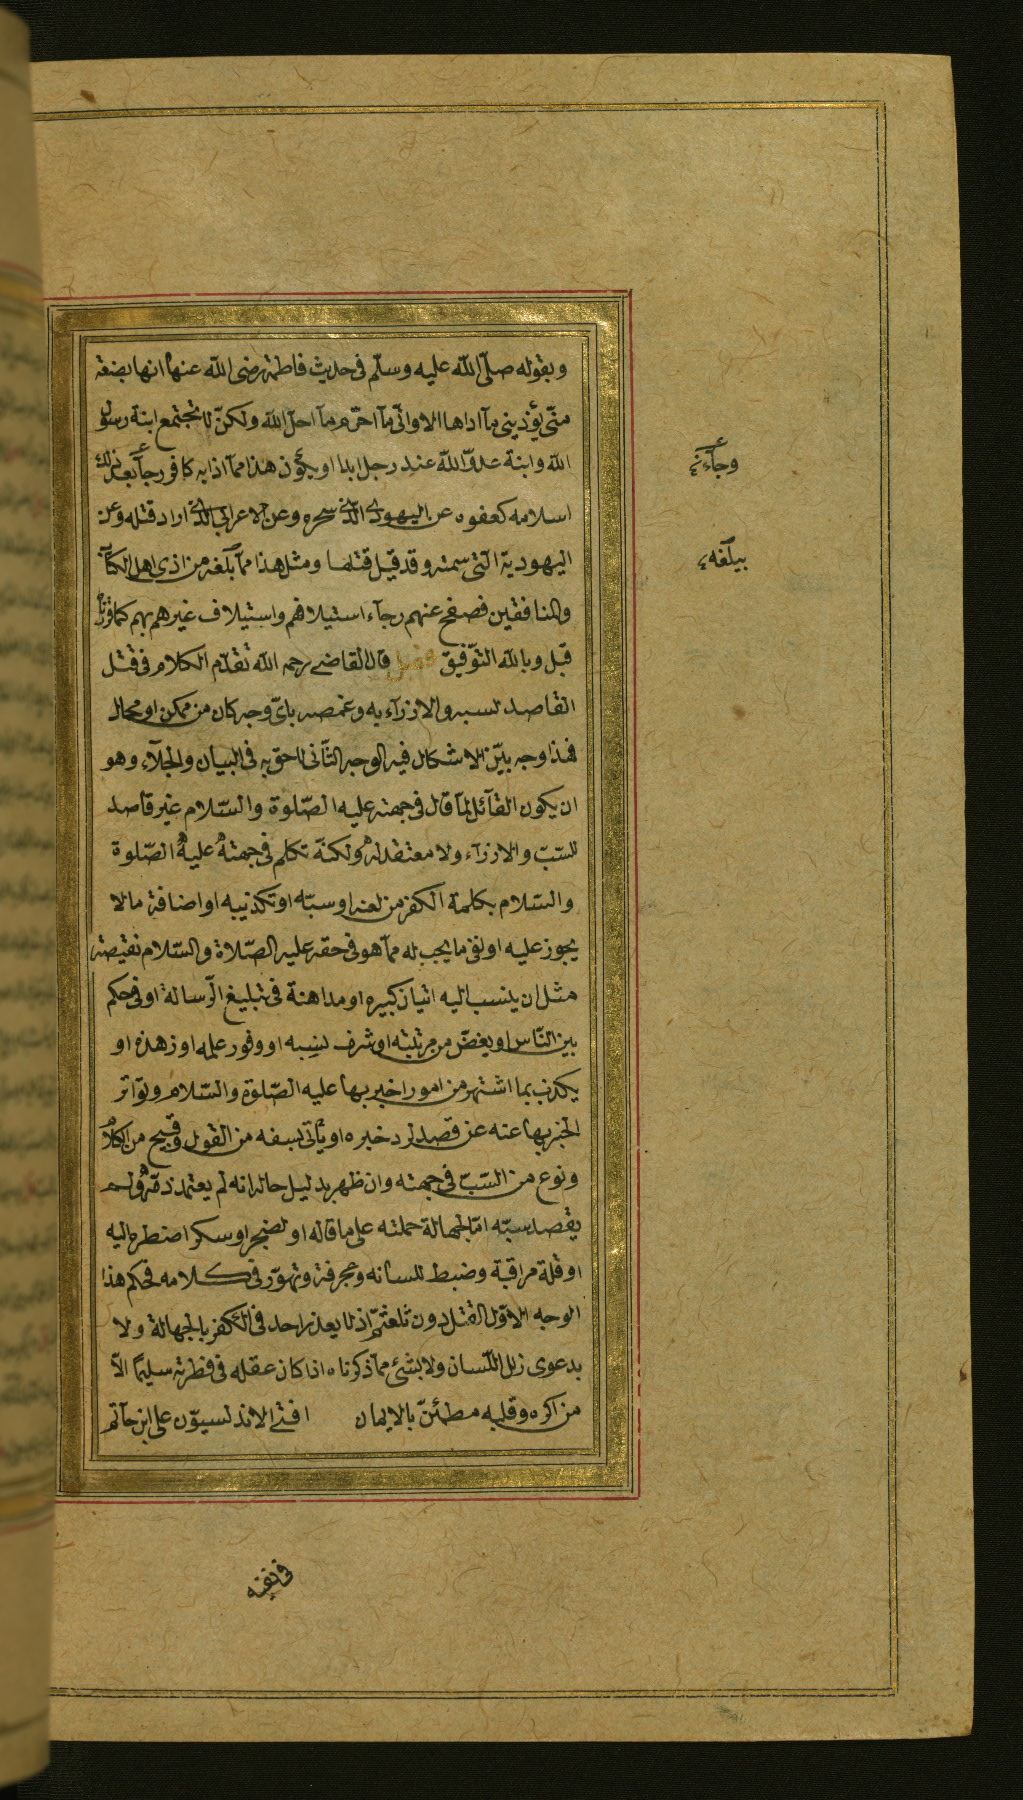 وبقوله صلّى الله عليه وسلّم فى حديث فاطمة رضى الله عنها انها بضعة
منّى يؤذينى ما اذاها الا وانّى ما احرّم ما احل الله ولكن لا تجتمع ابنة رسول
الله وابنة عدوّ الله عند رجل ابدا او يكون هذا ممّا اذابه كافر رجآء بعد ذلك
اسلامه كعفوه عن اليهودى الّذى سحره وعن الاعرابى الّذى اراد قتله وعن
اليهودية الّتى سمته وقد قيل قتلها ومثل هذا ممّا بلغه من اذى اهل الكتاب
والمنافقين فصفح عنهم رجآء استيلافهم واستيلاف غيرهم بهم كما قررناه
قبل وبالله التّوفيق فصل قال القاضى رحمه الله تقدّم الكلام فى قتل
القاصد لسبه والازرآء به وغمصه باىّ وجه كان من ممكن او محال
فهذا وجه بيّن لا اشكال فيه الوجه الثّانى لاحق به فى البيان والجلآء وهو
ان يكون القآئل لما قال فى جهته عليه الصّلوة والسّلام غير قاصد
للسّبّ والازرآء ولا معتقد له ولكنّه تكلم فى جهته عليه الصّلوة
والسّلام بكلمة الكفر من لعنه او سبّه او تكذيبه او اضافة ما لا
يجوز عليه او نفى ما يجب له ممّا هو فى حقه عليه الصّلاة والسّلام نقيصة
مثل ان ينسب اليه اتيان كبيره او مداهنة فى تبليغ الرّسالة او فى حكم
بين النّاس او يغضّ من مرتبته او شرف نسبه او وفور علمه او زهده او
يكذب بما اشتهر من امور اخبر بها عليه الصّلوة والسّلام وتواتر
الخبر بها عنه عن قصد لرد خبره او يأتى بسفه من القول وقبيح من الكلام
ونوع من السّبّ فى جهته وان ظهر بدليل حاله انه لم يعتمد ذمّه ولم
يقصد سبّه امّا لجهالة حملته على ما قاله او لضجر او سكر اضطره اليه
او قلة مراقبة وضبط للسانه وعجرفة وتهوّر فى كلامه فحكم هذا
الوجه الاوّل القتل دون تلعثم اذ لا يعذر احد فى الكفر بالجهالة ولا
بدعوى زلل اللّسان ولا بشئ ممّا ذكرناه اذا كان عقله فى فطرته سليما الّا
من اكره وقلبه مطمئنّ بالايمان افتى الاندلسيوّن على ابن حآتم
وجآءنه
بيلغه
فى نفيه